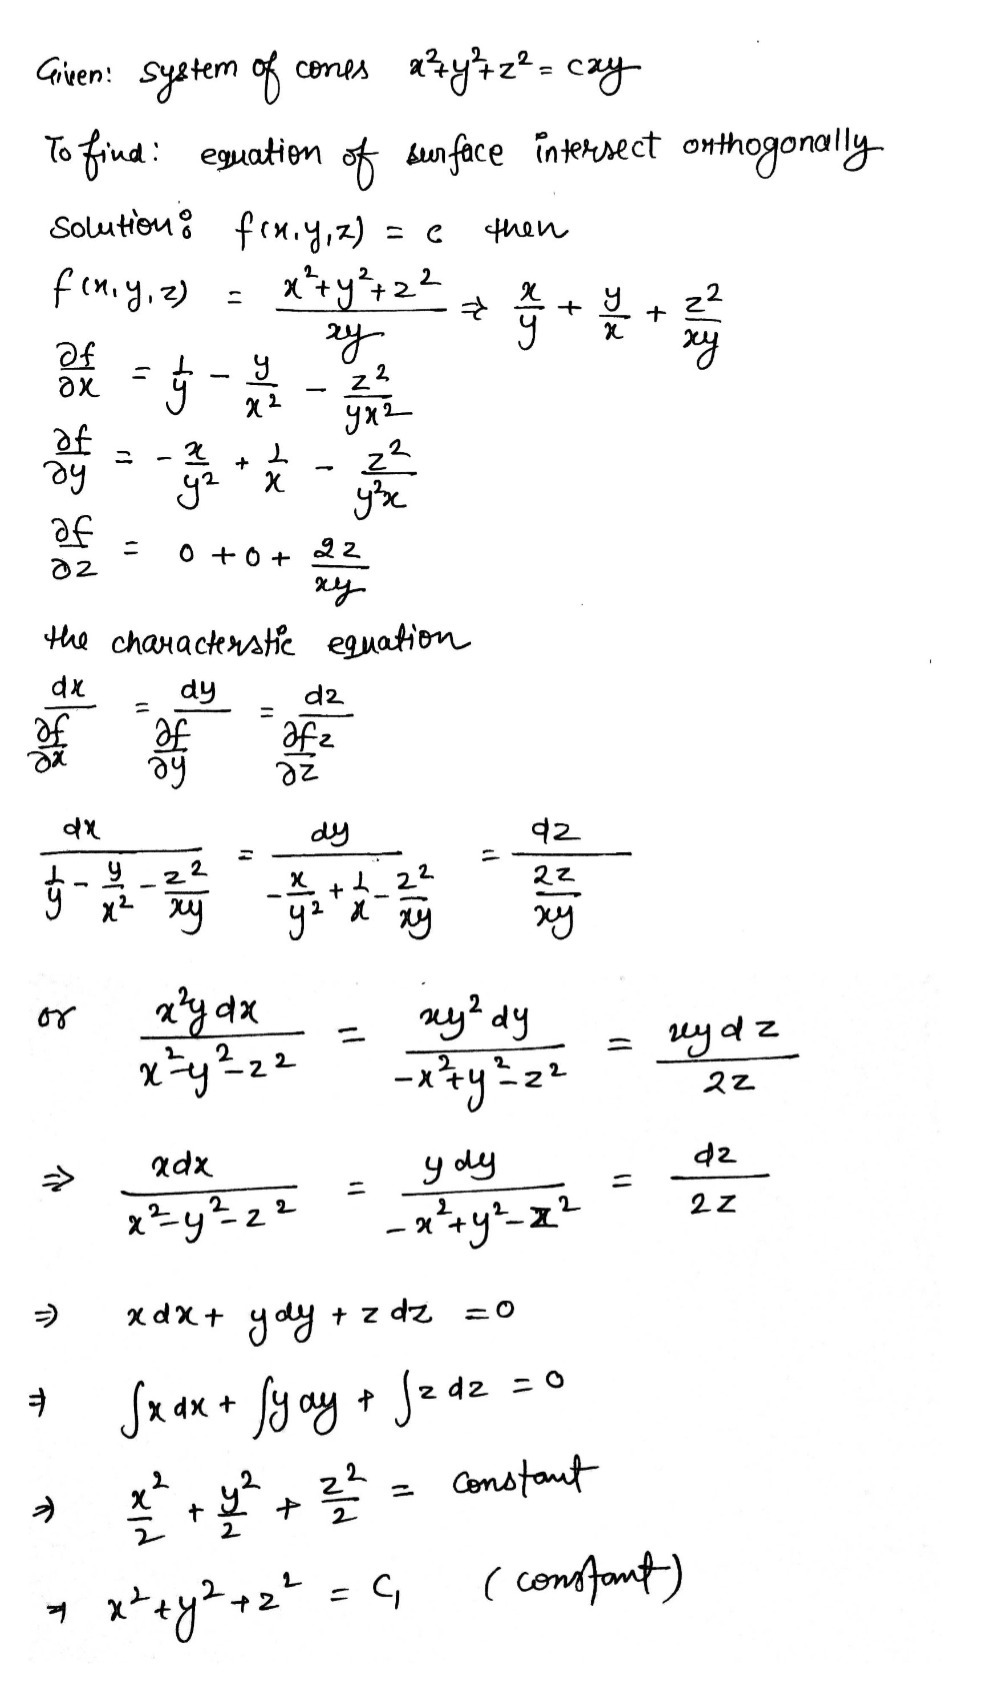 Given: system of cones x²+y²+z² = cxy
To find: equation of surface intersect orthogonally
Solution: f(x,y,z) = c then
f(x,y,z) = (x²+y²+z²)/(xy) ⇒ x/y + y/x + z²/(xy)
∂f/∂x = 1/y - y/x² - z²/(yx²)
∂f/∂y = -x/y² + 1/x - z²/(y²x)
∂f/∂z = 0 + 0 + 2z/(xy)
the characterstic equation
dx/(∂f/∂x) = dy/(∂f/∂y) = dz/(∂fz/∂z)
dx/(1/y - y/x² - z²/(xy)) = dy/(-x/y² + 1/x - z²/(xy)) = dz/(2z/(xy))
or x²y dx/(x²-y²-z²) = xy² dy/(-x²+y²-z²) = xy dz/(2z)
⇒ xdx/(x²-y²-z²) = y dy/(-x²+y²-z²) = dz/(2z)
⇒ xdx + ydy + z dz = 0
⇒ ∫x dx + ∫y dy + ∫z dz = 0
⇒ x²/2 + y²/2 + z²/2 = constant
⇒ x²+y²+z² = C₁ (constant)